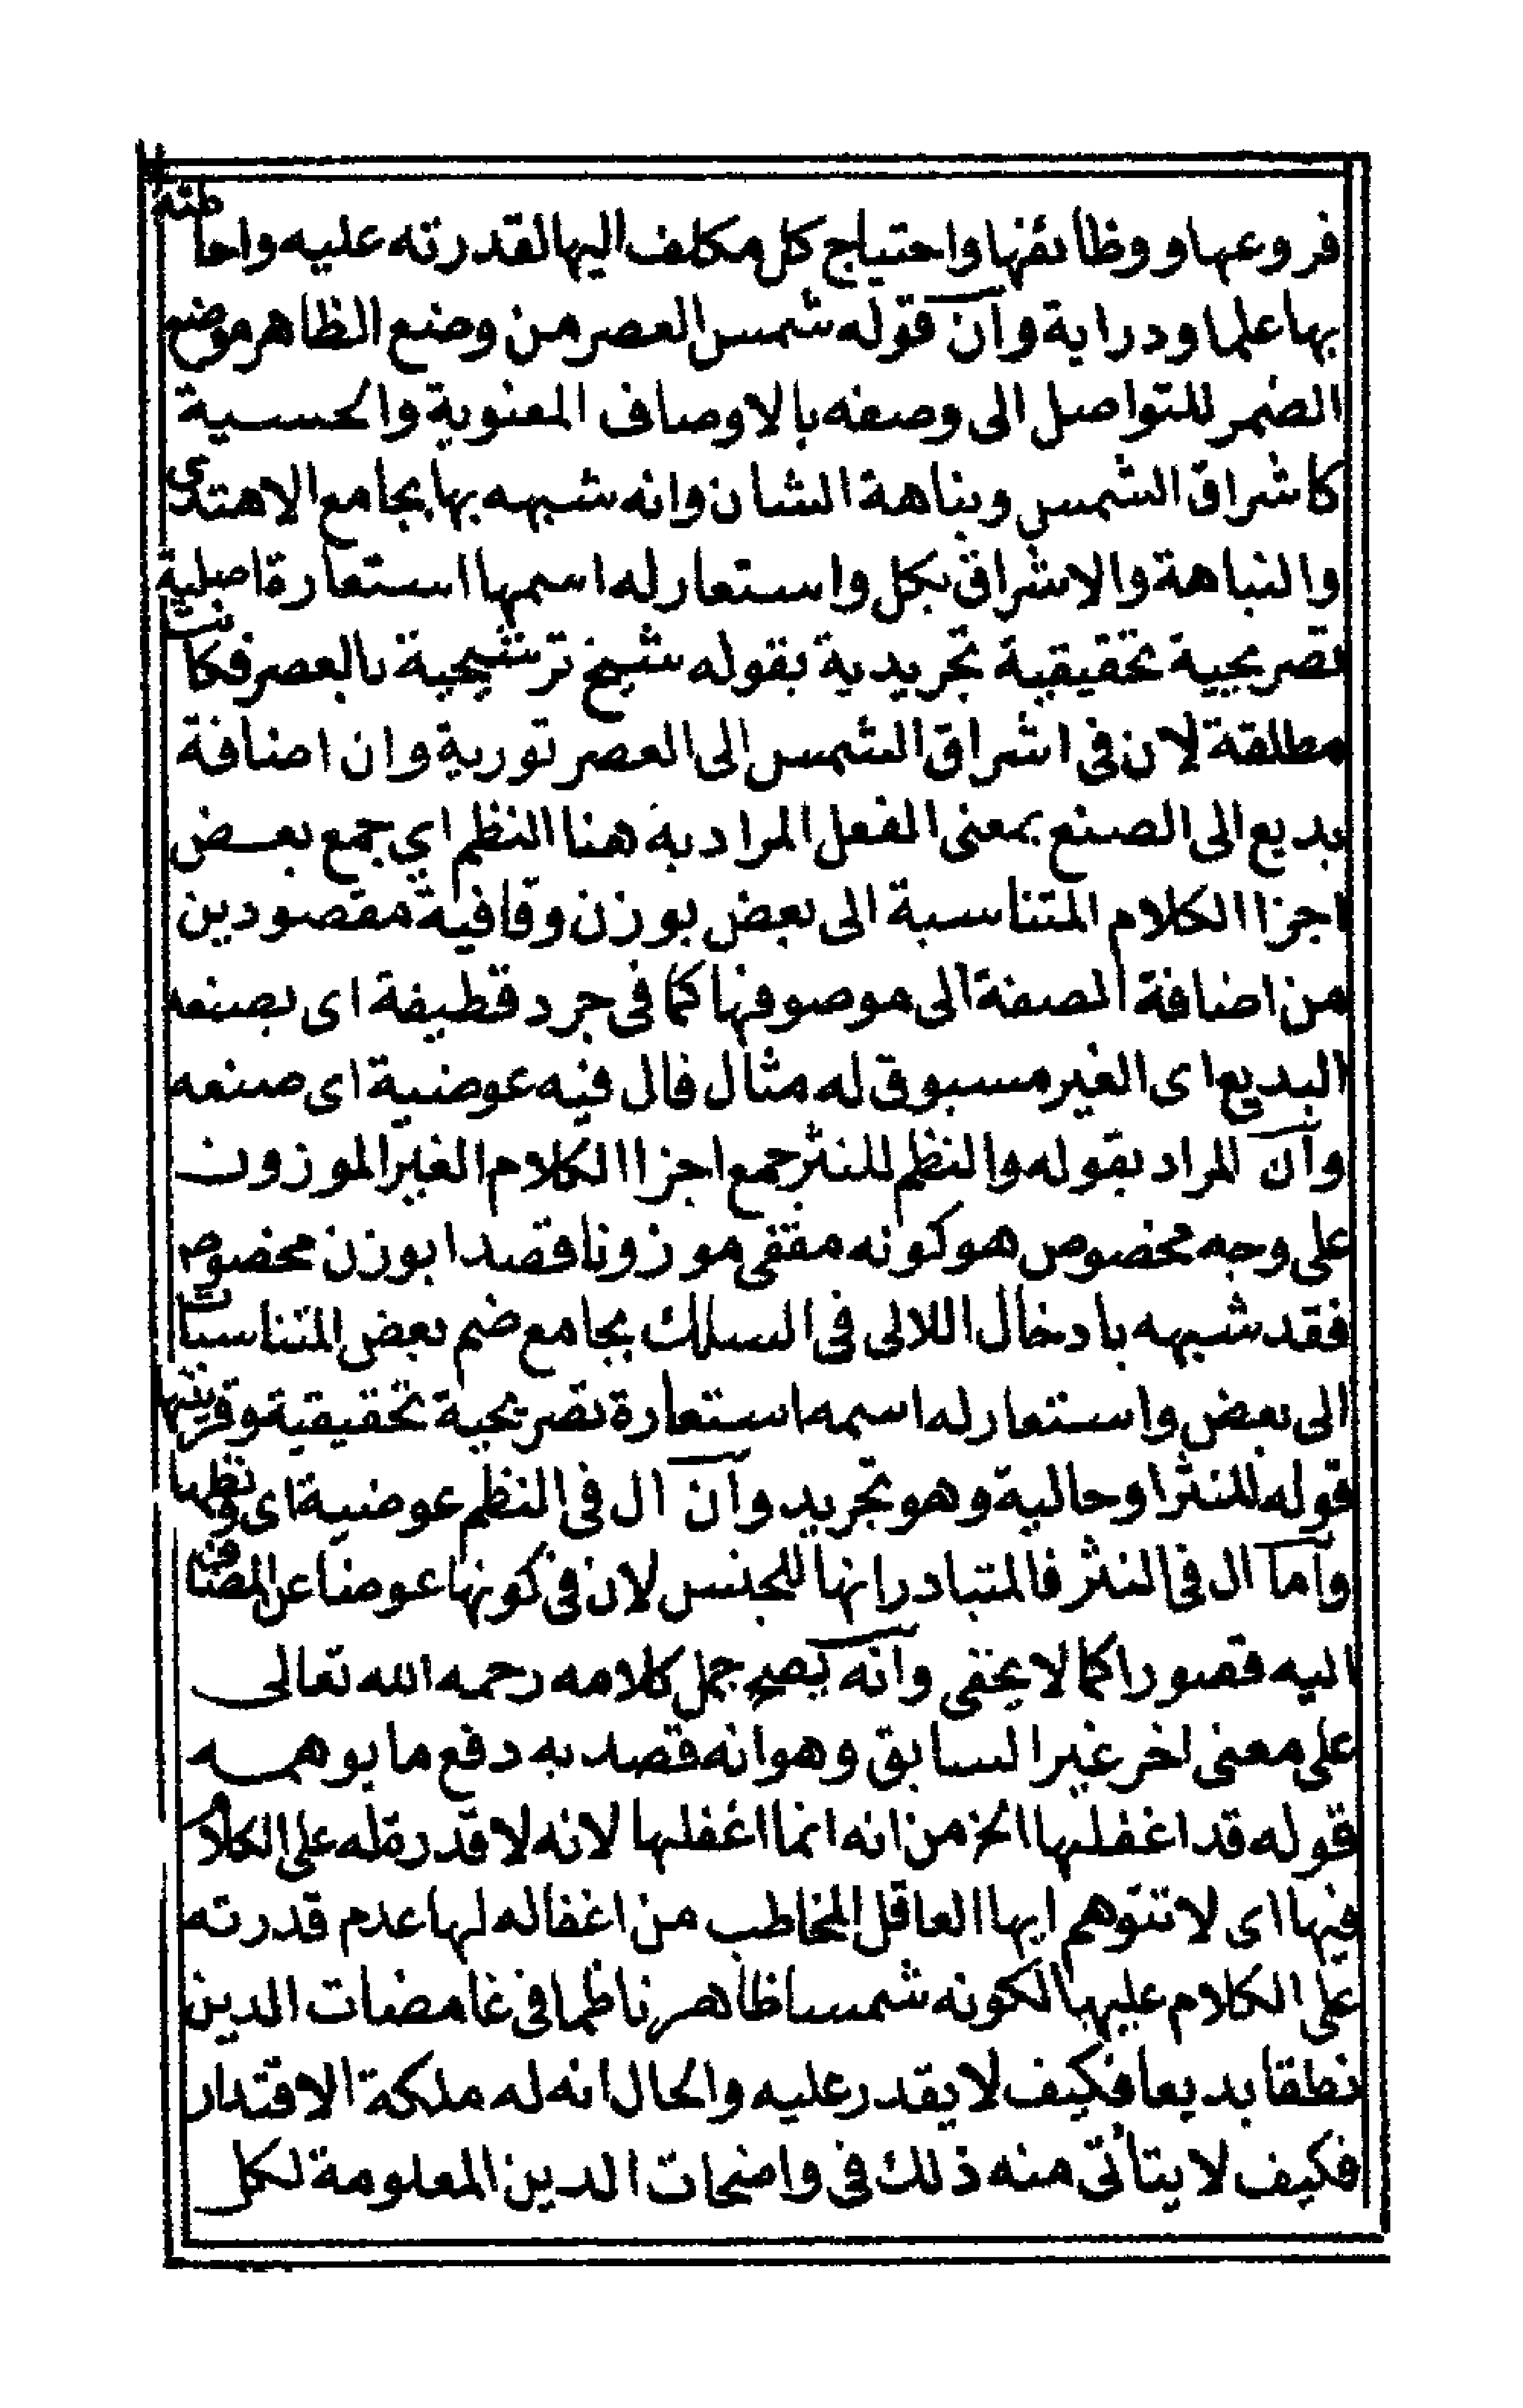 فروعها ووظائفها واحتياج كل مكلف اليها لقدرته عليه واحاطته
بها علما ودراية وان قوله شمس العصر من وضع الظاهر موضع
الضمر للتواصل الى وصفه بالاوصاف المعنوية والحسية
كاشراق الشمس ونباهة الشان وانه شبهه بها بجامع الاهتدى
والنباهة والاشراق بكل واستعار له اسمها استعارة اصلية
تصريحية تحقيقية تجريدية بقوله شيخ ترشيحية بالعصر فكانت
مطلقة لان في اشراق الشمس الى العصر تورية وان اضافة
بديع الى الصنع بمعنى الفعل المراد به هنا النظم اي جمع بعض
اجزا الكلام المتناسبة الى بعض بوزن وقافية مقصودين
من اضافة الصفة الى موصوفها كما في جرد قطيفة اى بصنعه
البديع اى الغير مسبوق له مثال فال فيه عوضية اى صنعه
وان المراد بقوله والنظم للنثر جمع اجزا الكلام الغير الموزون
على وجه مخصوص هو كونه مقفى موزونا قصدا بوزن مخصوص
فقد شبهه بادخال اللالى فى السلك بجامع ضم بعض المتناسبات
الى بعض واستعار له اسمه استعارة تصريحية تحقيقية وقرينتها
قوله للنثر او حالية وهو تجريد وان ال فى النظم عوضية اى ونظمها
واما ال فى النثر فالمتبادر انها للجنس لان فى كونها عوضا عن المضاف
اليه قصورا كما لا يخفى وانه يصح حمل كلامه رحمه الله تعالى
على معنى اخر غير السابق وهو انه قصد به دفع ما يوهمه
قوله قد اغفلها الخ من انه انما اغفلها لانه لا قدرة له على الكلام
فيها اى لا تتوهم ايها العاقل المخاطب من اغفاله لها عدم قدرته
على الكلام عليها لكونه شمسا ظاهر ناظما فى غامضات الدين
نطقا بديعا فكيف لا يقدر عليه والحال انه له ملكة الاقتدار
فكيف لا يتأتى منه ذلك فى واضحات الدين المعلومة لكل